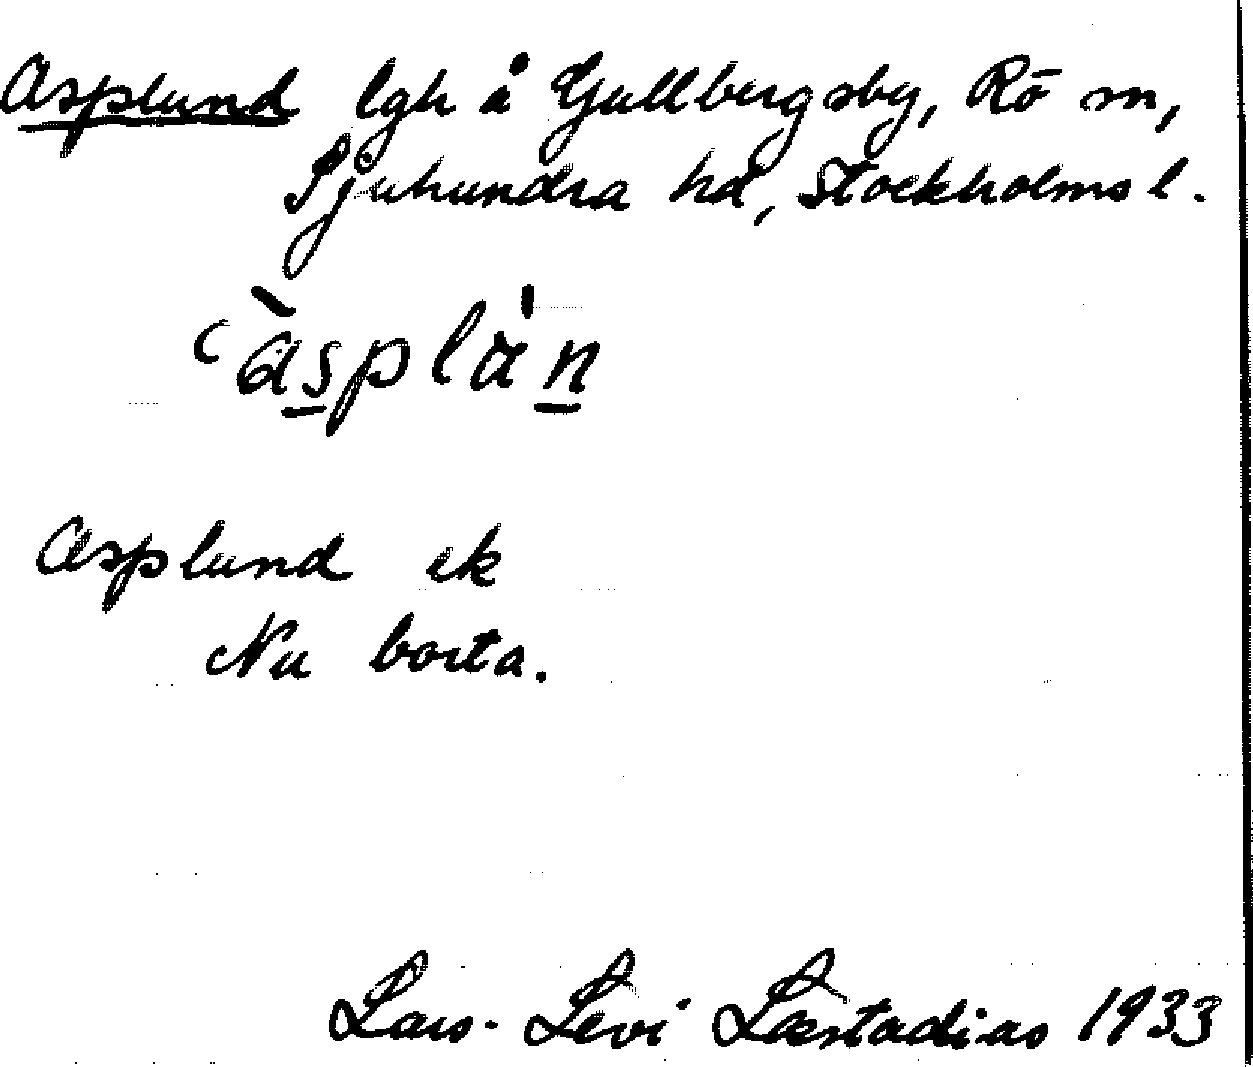 Asplund lgh å Gullbergsby, Rö sn,
Sjuhundra hd, Stockholms l.
Asplund ek
Nu borta.
Lars-Levi Læstadius 1933